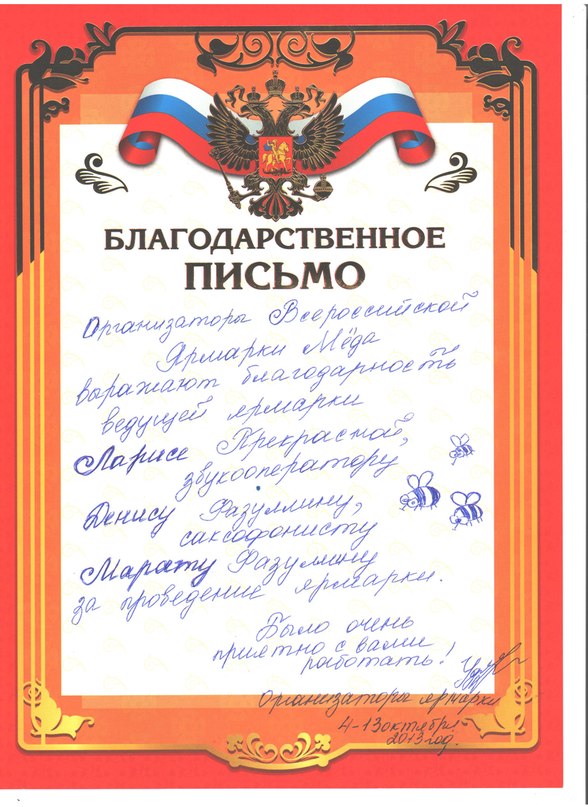 БЛАГОДАРСТВЕННОЕ
ПИСЬМО
Организаторы Всероссийской
Ярмарки Мёда
выражают благодарность
ведущей ярмарки
Ларисе Прекрасной,
звукооператору
Денису Фазуллину,
саксофонисту
Марату Фазуллину
за проведение ярмарки.
Было очень
приятно с вами
работать!
Организаторы ярмарки
4-13 октября
2013 год.